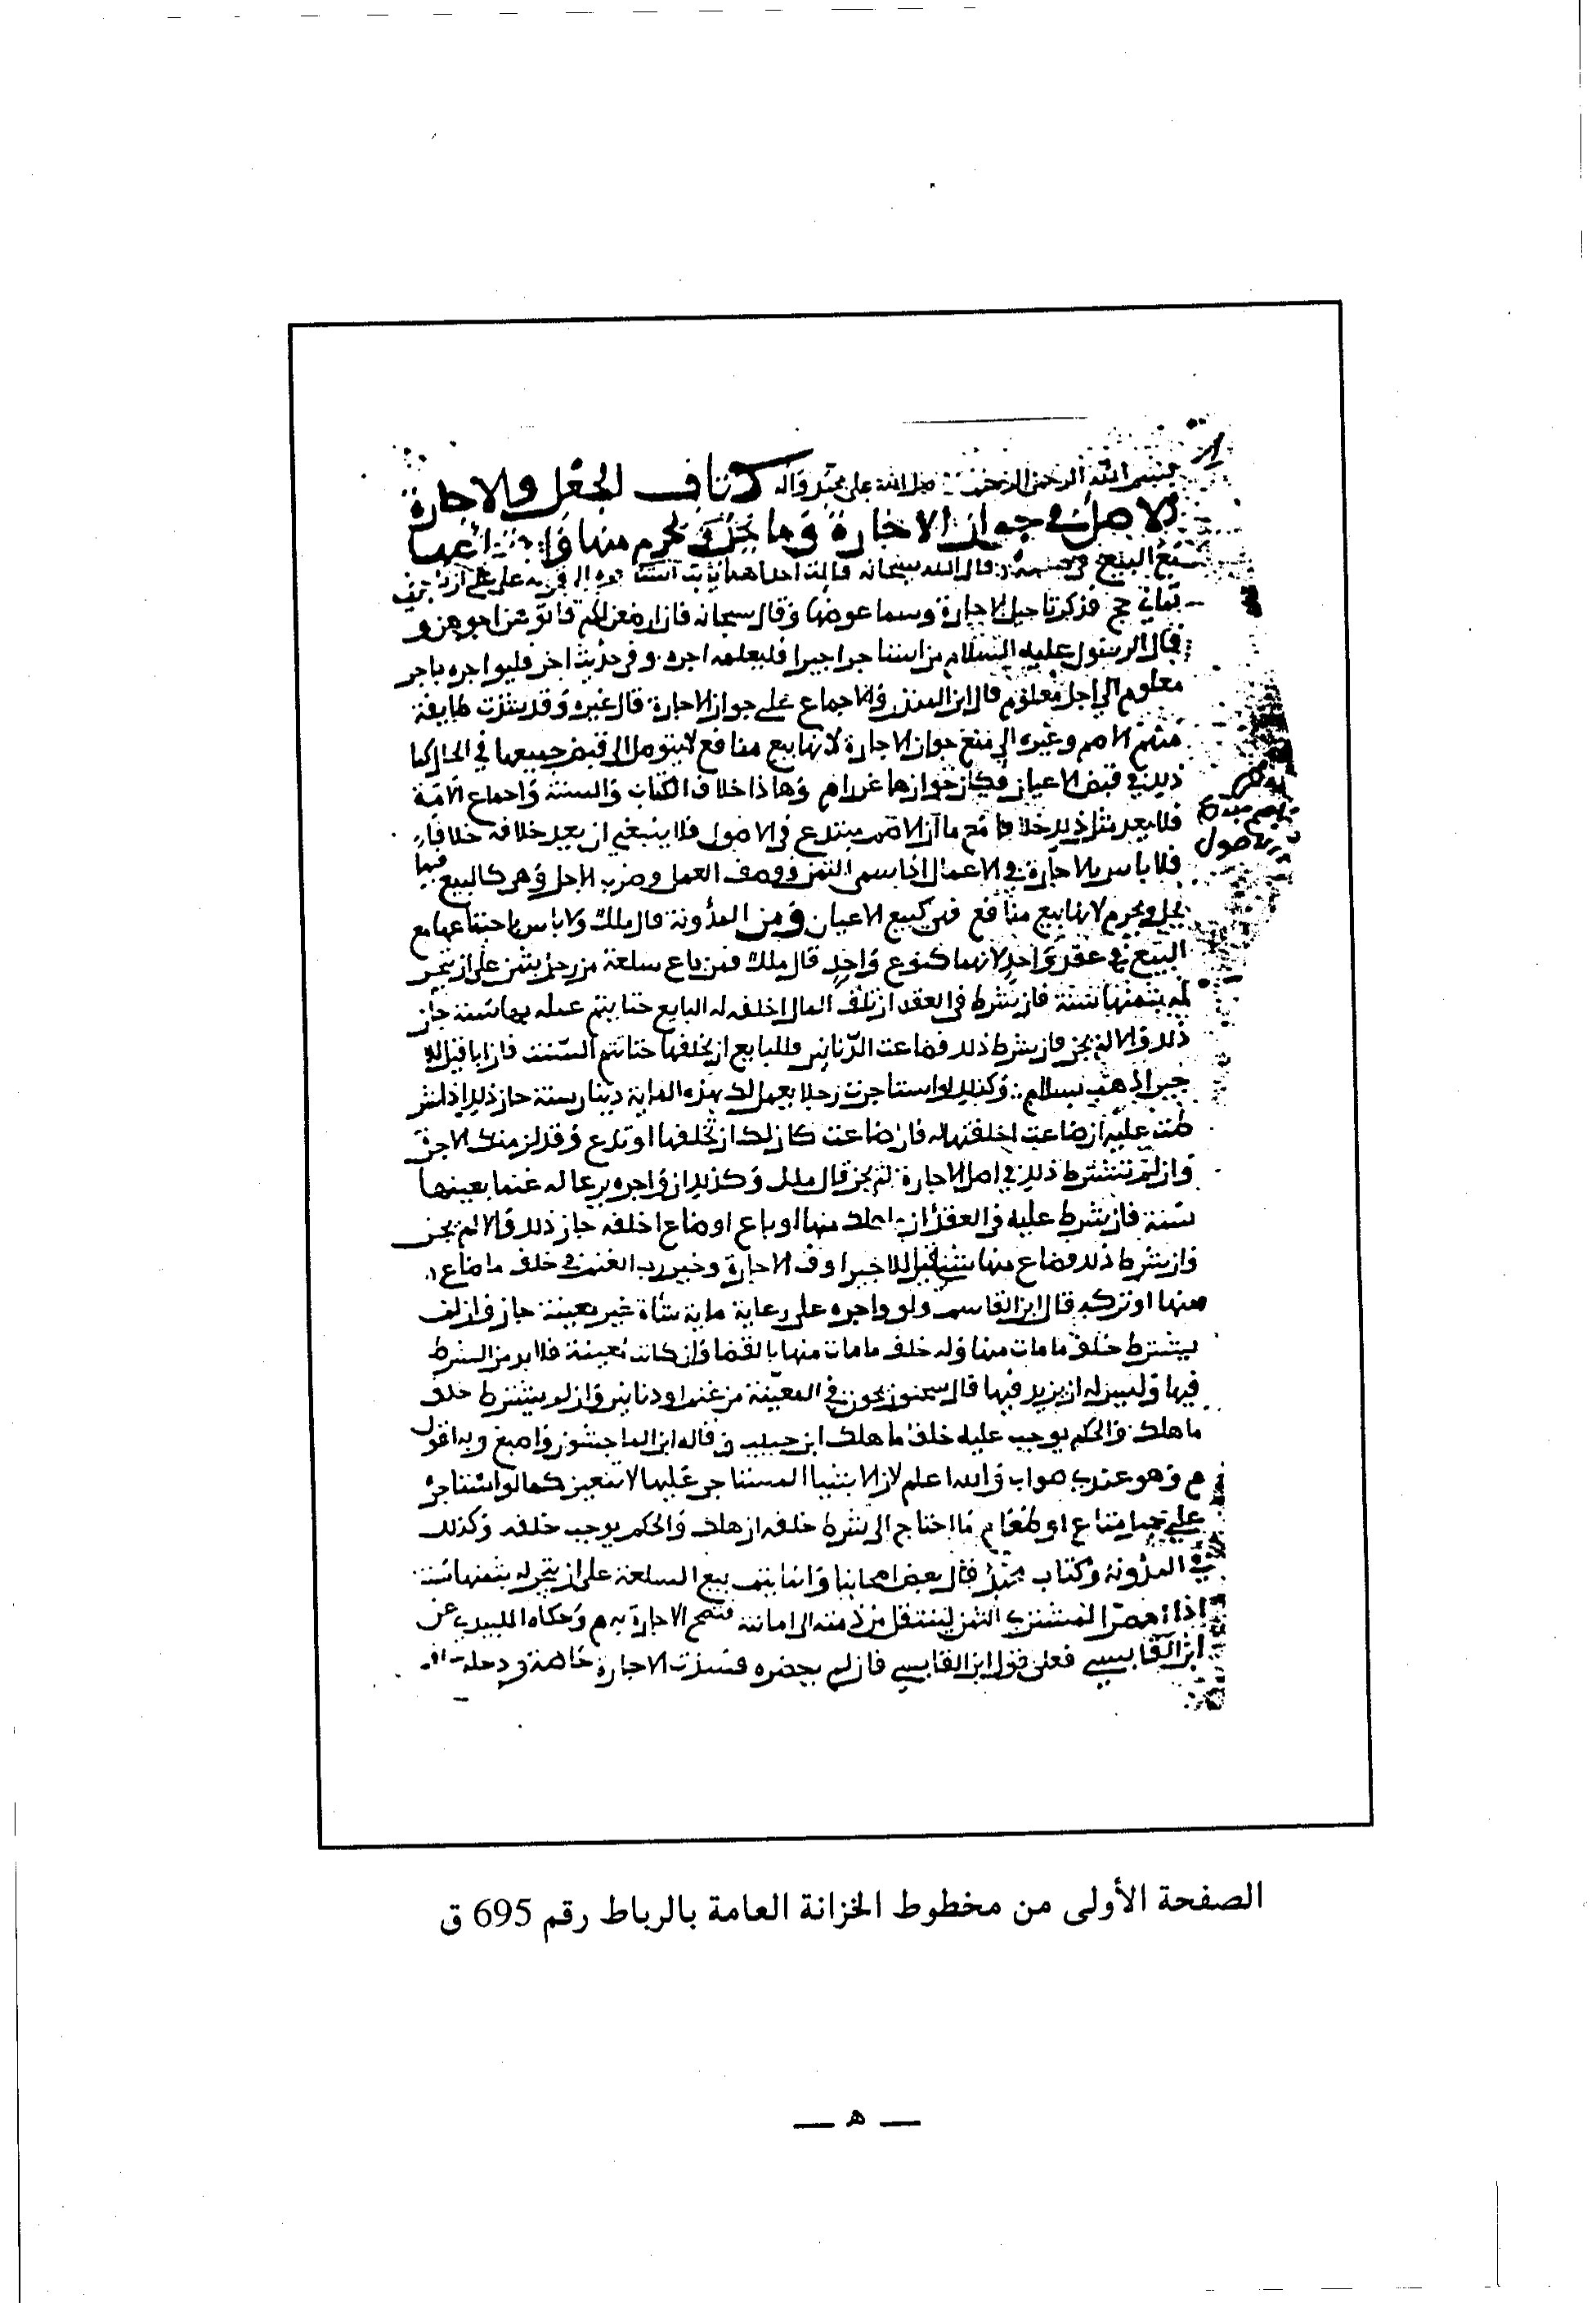 بسم الله الرحمن الرحيم صلى الله على محمد وآله كتاب الجعل والاجارة
الاصل في جواز الاجارة وما يحل ويحرم منها واجتماعها
مع البيع في قال الله سبحانه قالت احداهما يا أبت استئجره الى قوله على أن تاجرني
ثماني حجج فذكر تاجيل الاجارة وسما عوضها وقال سبحانه فان ارضعن لكم فاتوهن اجورهن و
قال الرسول عليه السلام من استاجر اجيرا فليعلمه اجره وفي حديث اخر فليواجره باجر
معلوم الى اجل معلوم قال ابن المنذر والاجماع على جواز الاجارة قال غيره وقد شذت طايفة
منهم الاصم وغيره الى منع جواز الاجارة لانها بيع منافع لا يتوصل الى قبض جميعها في الحال كما
ذلك في قبض الاعيان فكان جوازها غررا م وهاذا خلاف الكتاب والسنة واجماع الامة
فلا يعد مثل ذلك خلافا مع ما ان الاصم مبتدع في الاصول فلا ينبغي ان يعد خلافه خلافا
فلا باس بالاجارة في الاعمال اذا سمى الثمن ووصف العمل وضرب الاجل وهي كالبيع فيما
يحل ويحرم لانها بيع منافع فهي كبيع الاعيان ومن المدونة قال ملك ولا باس باجتماعها مع
البيع في عقد واحد لانهما كنوع واحد قال ملك فمن باع سلعة من رجل بثمن على ان يتجر
له بثمنها سنة فان شرط في العقد ان تلف المال اخلفه له البايع حتا يتم عمله بها سنة جاز
ذلك والا لم يجز فان شرط ذلك فضاعت الدنانير فللبايع ان يخلفها حتا تتم السنة فان ابا قيل للا
جير اذهب بسلام وكذلك لو استاجرت رجلا يعمل لك بهذه الماية دينار سنة جاز ذلك اذا اشتر
طت عليه ان ضاعت اخلفتها له فان ضاعت كان لك ان تخلفها او تدع وقد لزمتك الاجرة
وان لم تشترط ذلك في اصل الاجارة لم يجز قال ملك وكذلك ان واجره يرعا له غنما بعينها
سنة فان شرط عليه في العقد ان ما هلك منها او باع او ضاع اخلفه جاز ذلك والا لم يجز
وان شرط ذلك فضاع منها شيء قيل للاجير اوف الاجارة وخير رب الغنم في خلف ما ضاع
منها او تركه قال ابن القاسم ولو واجره على رعاية ماية شاة غير معينة جاز وان لم
يشترط خلف ما مات منها وله خلف ما مات منها بالقضا وان كانت معينة فلا بد من الشرط
فيها وليس له ان يزيد فيها قال سحنون يجوز في المعينة من غنم او دنانير وان لم يشترط خلف
ما هلك والحكم يوجب عليه خلف ما هلك ابن حبيب وقاله ابن الماجشون واصبغ وبه اقول
م وهو عندي صواب والله اعلم لان الاشيا المستاجر عليها لا تتعين كما لو استاجره
على حمل متاع او طعام ما احتاج الى شرط خلفه ان هلك والحكم يوجب خلفه وكذلك
في المدونة وكتاب محمد قال بعض اصحابنا وانما يتم بيع السلعة على ان يتجر له بثمنها سنة
اذا احضر المشتري الثمن لينتقل من ذمته الى امانته فتصح الاجارة به م وحكاه اللبيدي عن
ابن القابسي فعلى قول ابن القابسي فان لم يحضره فسدت الاجارة
الصفحة الأولى من مخطوط الخزانة العامة بالرباط رقم 695 ق
— ه —